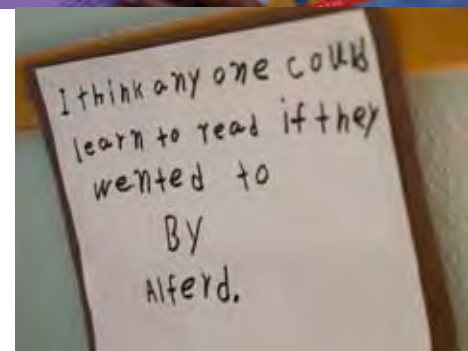 I think any one could
learn to read if they
wented to
By
Alferd.